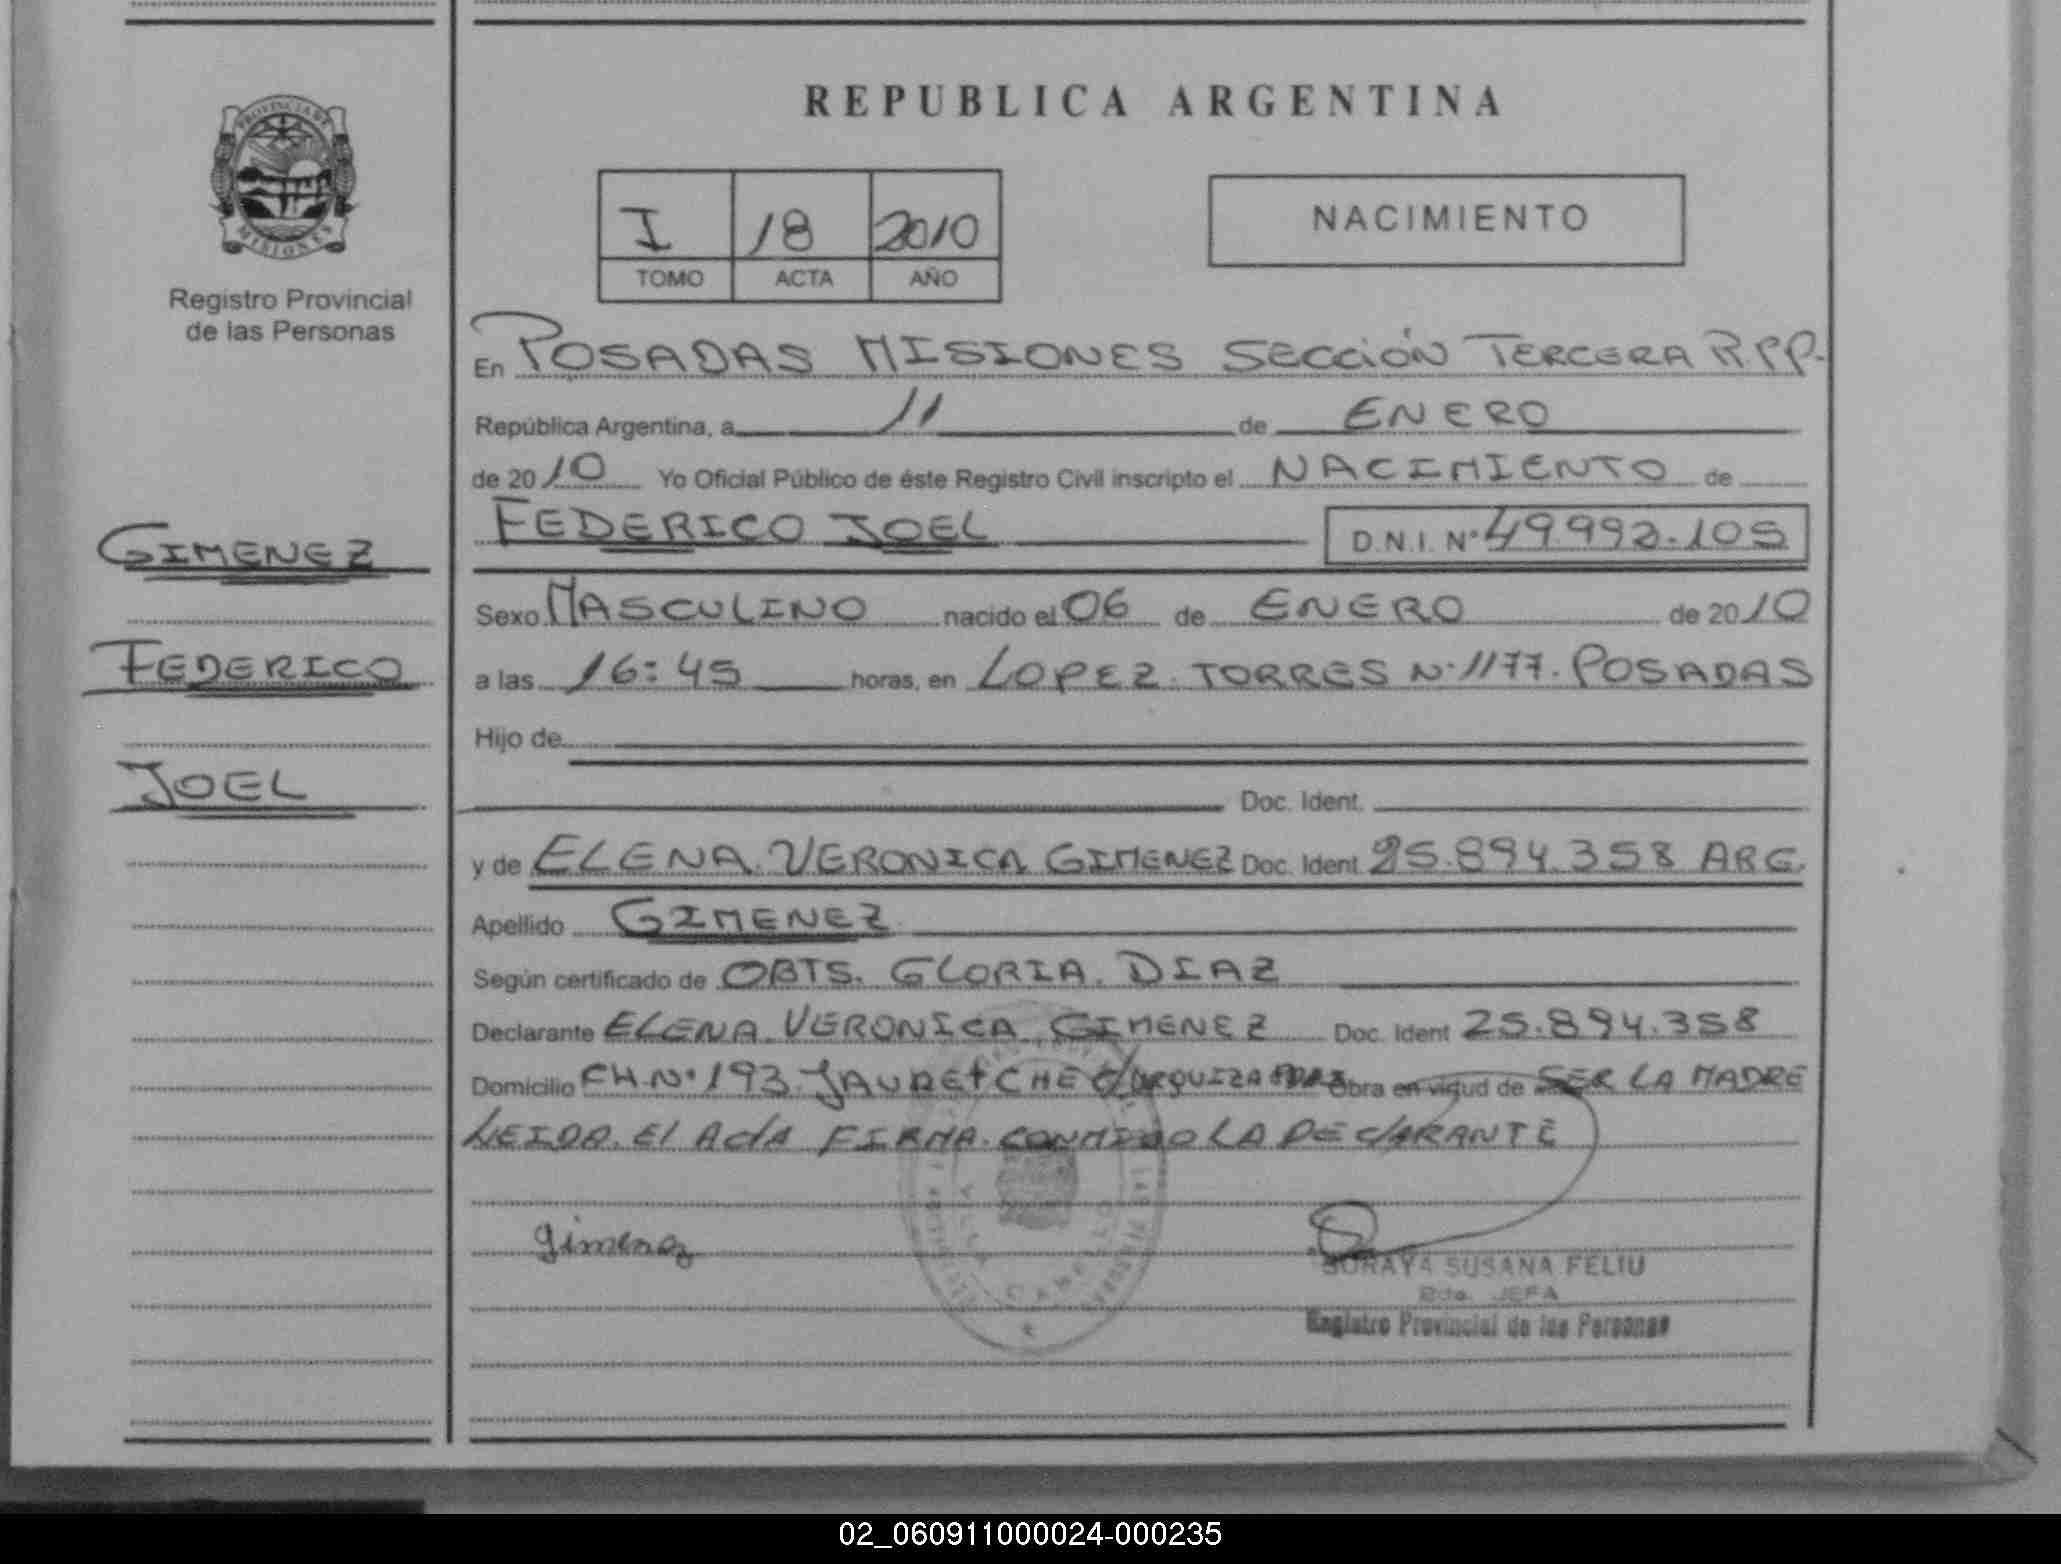 REPUBLICA ARGENTINA
PROVINCIA DE MISIONES
Registro Provincial
de las Personas
I 18 2010
TOMO ACTA AÑO
NACIMIENTO
En POSADAS MISIONES SECCIÓN TERCERA R.P.P.
República Argentina, a 11 de ENERO
de 2010 Yo Oficial Público de éste Registro Civil inscripto el NACIMIENTO de
FEDERICO JOEL D.N.I. Nº 49.992.105
GIMENEZ
FEDERICO
JOEL
Sexo MASCULINO nacido el 06 de ENERO de 2010
a las 16:45 horas, en LOPEZ TORRES Nº 1177. POSADAS
Hijo de
Doc. Ident.
y de ELENA VERONICA GIMENEZ Doc. Ident 25.894.358 ARG.
Apellido GIMENEZ
Según certificado de OBTS. GLORIA DIAZ
Declarante ELENA VERONICA GIMENEZ Doc. Ident 25.894.358
Domicilio CH. Nº 193. JAURETCHE C/URQUIZA Obra en virtud de SER LA MADRE
LEIDA El ActA FIRMA CONMIGO LA DEClARANTE
Gimenez
SORAYA SUSANA FELIU
JEFA
Registro Provincial de las Personas
02_060911000024-000235